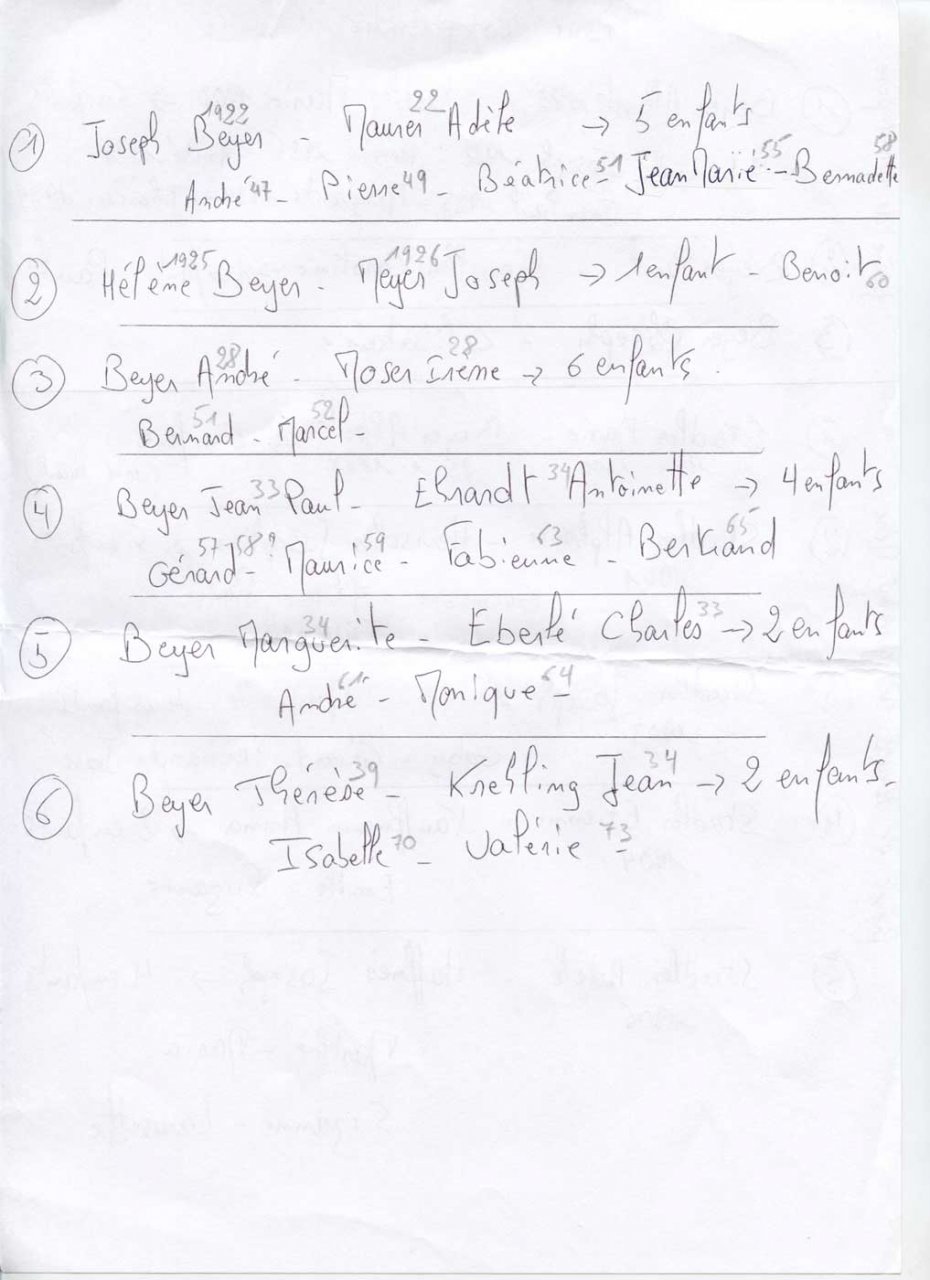 ① Joseph Beyer 1922 - Maurer Adèle 22 → 5 enfants
André 47 - Pierre 49 - Béatrice 51 - Jean Marie 55 - Bernadette 58
② Hélène Beyer 1925 - Meyer Joseph 1926 → 1 enfant - Benoit 60
③ Beyer André 28 - Moser Irène 28 → 6 enfants.
Bernard 51 - Marcel 52 -
④ Beyer Jean Paul 33 - Ehrardt Antoinette 34 → 4 enfants
Gérard 57/58? - Maurice 59 - Fabienne 63 - Bertrand 65
⑤ Beyer Marguerite 34 - Eberlé Charles 33 → 2 enfants
André 61 - Monique 64 -
⑥ Beyer Thérèse 39 - Jean 34 → 2 enfants -
Isabelle 70 - Valérie 73